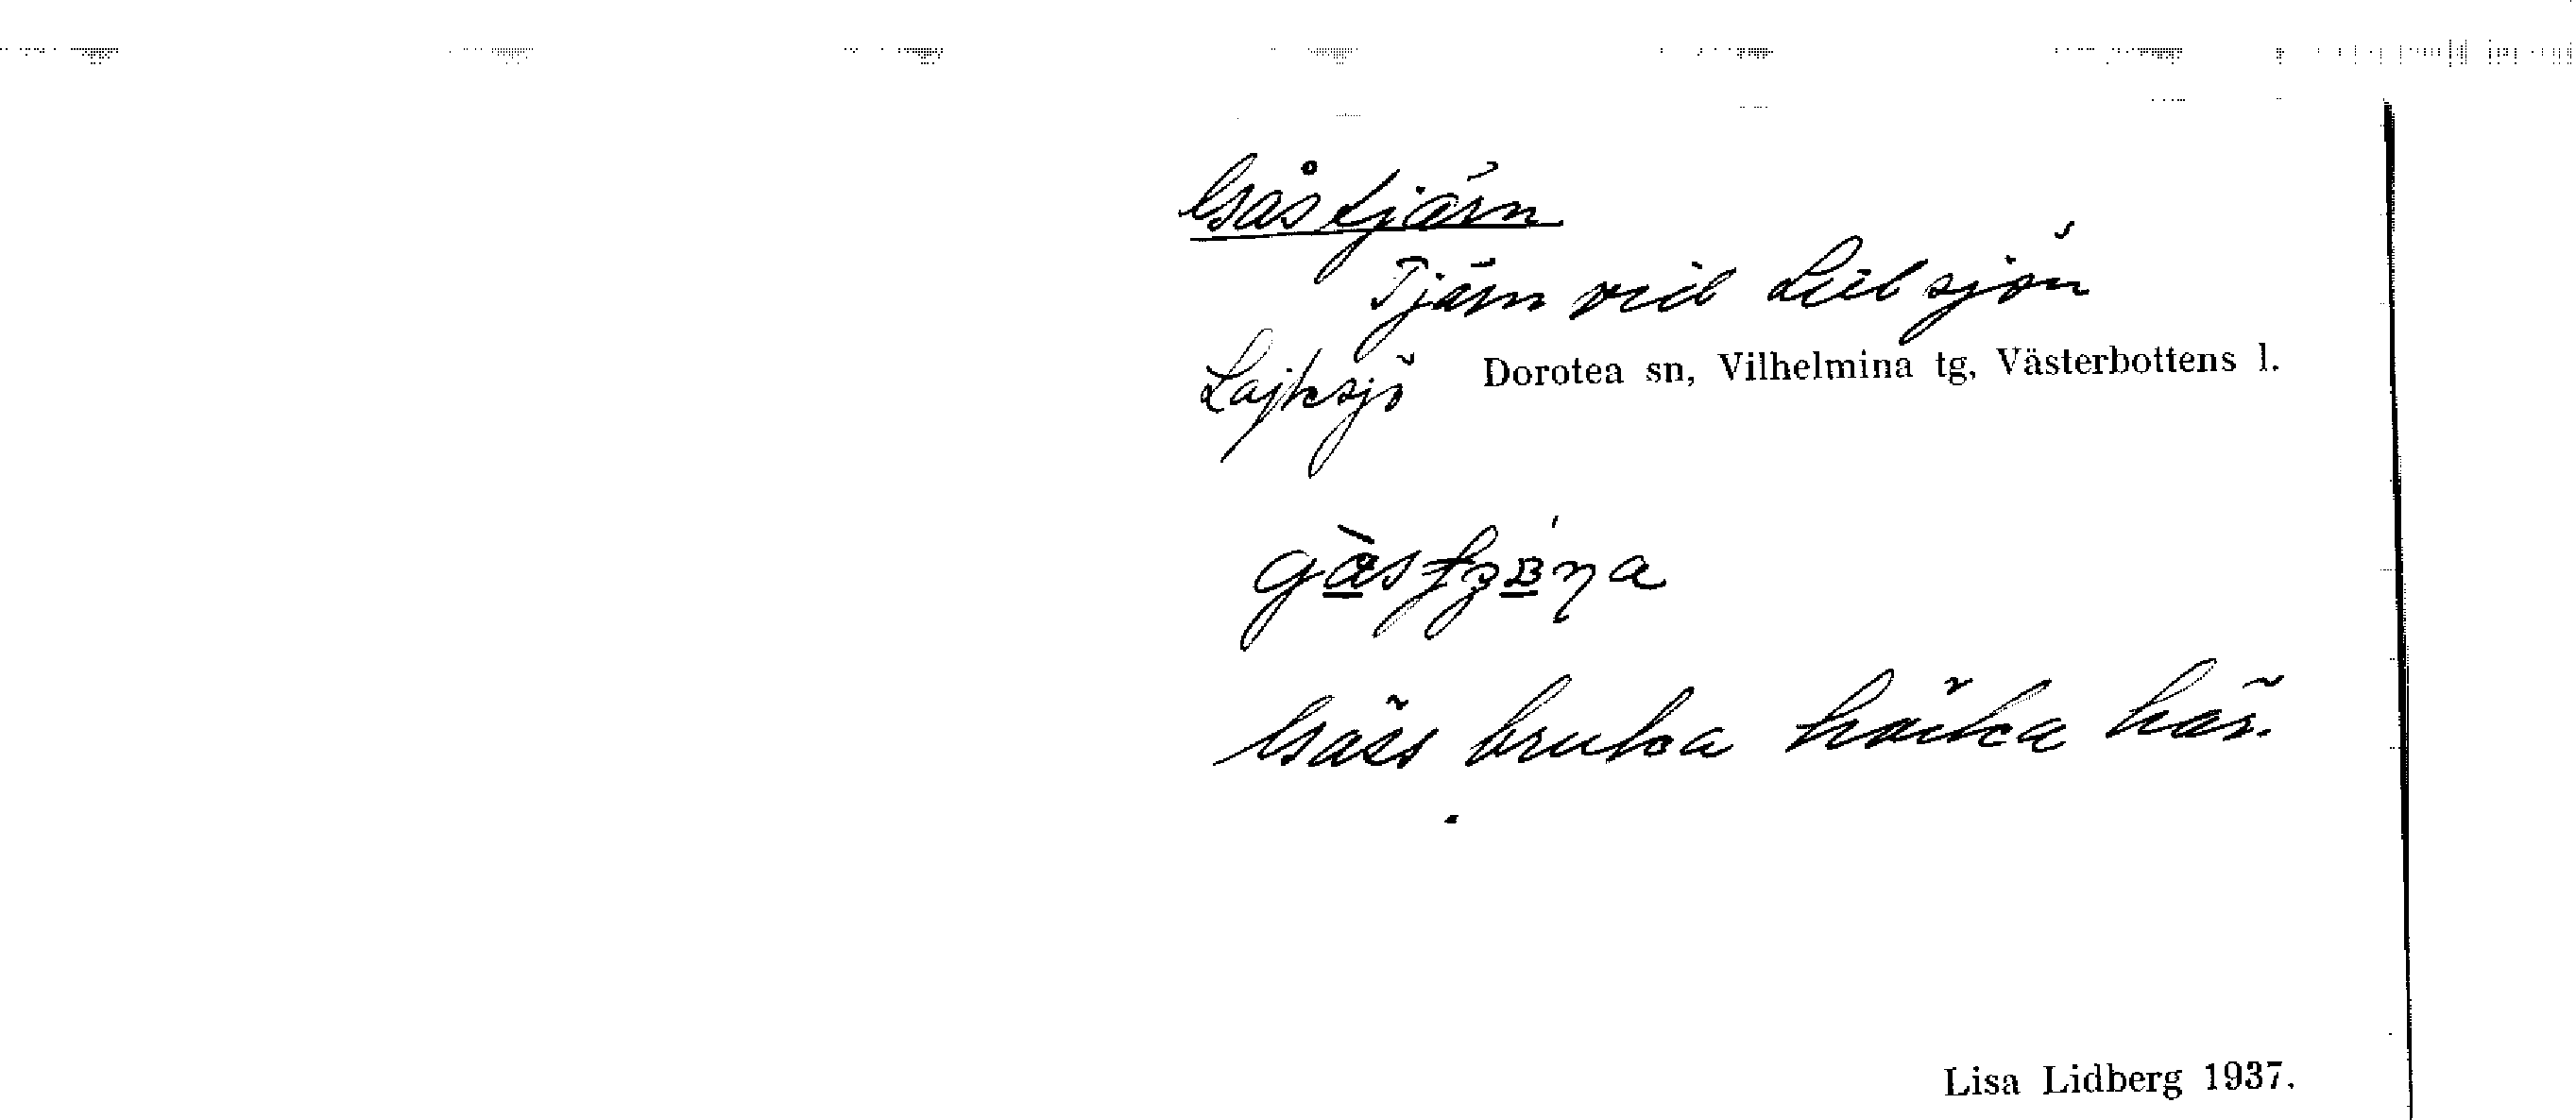 Gåstjärn
Tjärn vid Lill sjön
Lajksjö Dorotea sn, Vilhelmina tg, Västerbottens l.
Gäss bruka häcka här.
Lisa Lidberg 1937.